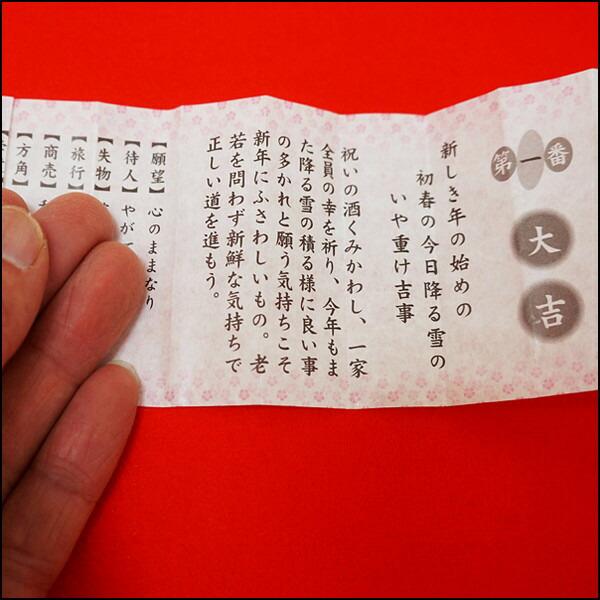 第一番
大吉
新しき年の始めの
初春の今日降る雪の
いや重け吉事
祝いの酒くみかわし、一家
全員の幸を祈り、今年もま
た降る雪の積る様に良い事
の多かれと願う気持ちこそ
新年にふさわしいもの。老
若を問わず新鮮な気持ちで
正しい道を進もう。
【願望】心のままなり
【待人】やがて
【失物】
【旅行】
【商売】
【方角】